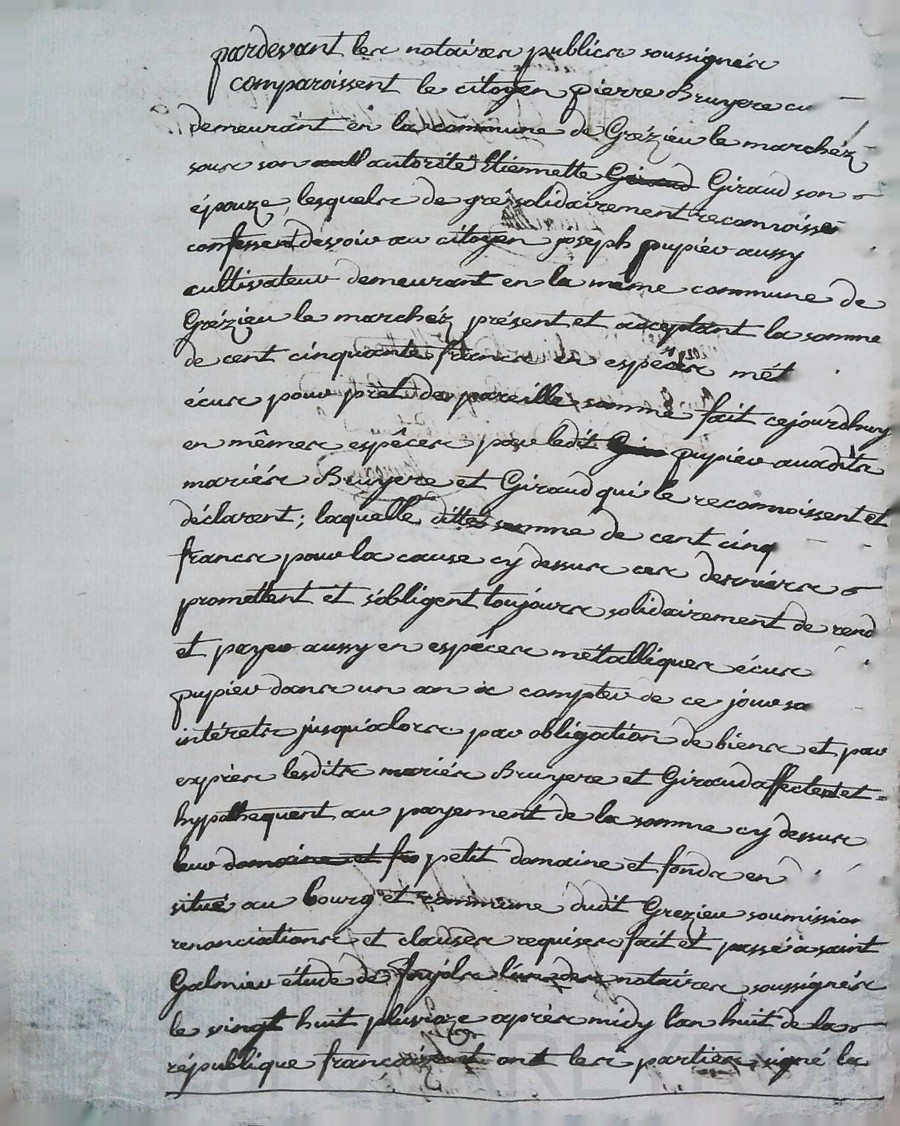 pardevant les notaires publics soussignés
comparoissent le citoyen pierre Bruyere cu
demeurant en la commune de Grézieu le marchéz
sous son autorité Etiennette Giraud Giraud son
épouze, lesquels de gre solidairement reconnoisse
confessent devoir au citoyen joseph pupier aussy
cultivateur demeurant en la même commune de
Grézieu le marchéz présent et acceptant la somme
de cent cinquante francs en espéces mét
écus pour prêt de pareille somme fait cejourdhuy
en mêmes espêces par ledit pupier auxdits
mariés Bruyere et Giraud qui le reconnoissent et
déclarent; laquelle ditte somme de cent cinq
francs pour la cause cy dessus ces derniérs
promettent et s'obligent toujours solidairement de rend
et payer aussy en espéces métalliques écus
pupier dans un an a compter de ce jour sa
intérets jusqu'alors par obligation de biens et par
exprès lesdits mariés Bruyere et Giraud affectent et
hypothequent au payement de la somme cy dessus
leur domaine et fo petit domaine et fonds en
situé au bourg et commune dudit Grezieu soumission
renonciations et clauses requises fait et passé à saint
Galmier étude de l'un des notaires soussignés
le vingt huit pluviose après midy l'an huit de la
république francaise et ont les parties signé la